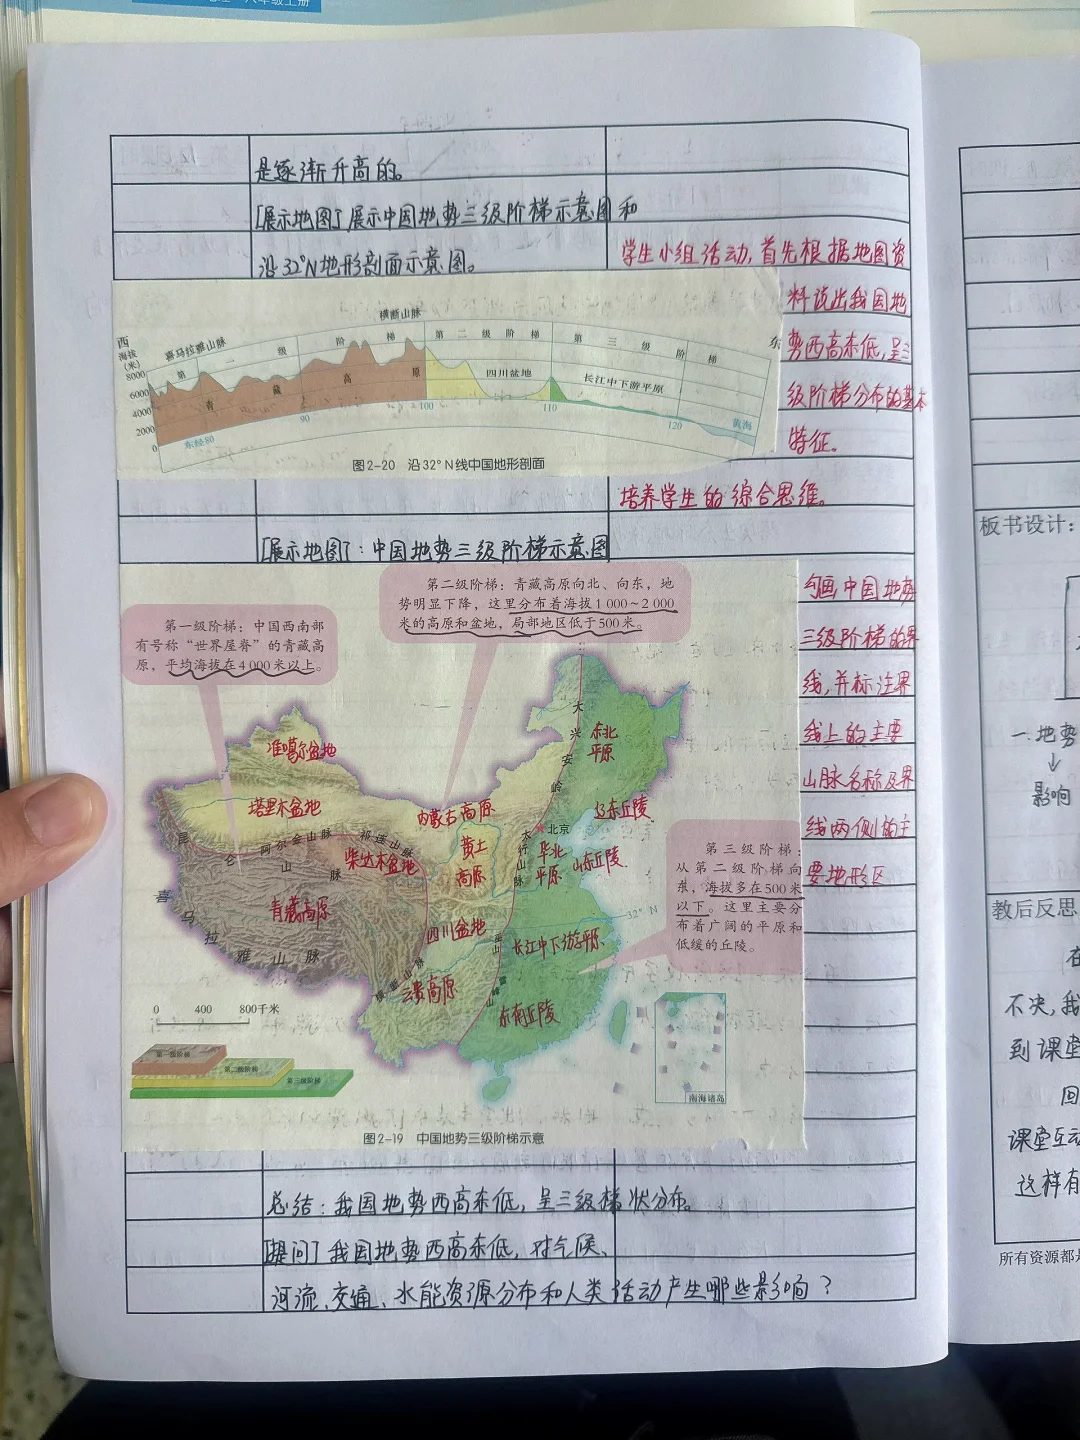 八年级上册
是逐渐升高的。
[展示地图] 展示中国地势三级阶梯示意图和
沿32°N地形剖面示意图。
学生小组活动,首先根据地图资
料说出我国地
势西高东低,呈三
级阶梯分布的基本
特征。
培养学生的综合思维。
西
海拔
(米)
8000
6000
4000
2000
0
喜马拉雅山脉
横断山脉
东
第一级阶梯
第二级阶梯
第三级阶梯
青藏高原
四川盆地
长江中下游平原
黄海
东经80
90
100
110
120
图2-20 沿32°N线中国地形剖面
[展示地图]:中国地势三级阶梯示意图
勾画中国地势
三级阶梯的界
线,并标注界
线上的主要
山脉名称及界
线两侧的主
要地形区
第一级阶梯:中国西南部
有号称“世界屋脊”的青藏高
原,平均海拔在4 000米以上。
第二级阶梯:青藏高原向北、向东,地
势明显下降,这里分布着海拔1 000~2 000
米的高原和盆地,局部地区低于500米。
第三级阶梯:
从第二级阶梯向
东,海拔多在500米
以下。这里主要分
布着广阔的平原和
低缓的丘陵。
准噶尔盆地
塔里木盆地
内蒙古高原
东北
平原
辽东丘陵
大兴安岭
北京
太行山脉
华北
平原
山东丘陵
黄土
高原
祁连山脉
阿尔金山脉
昆仑山脉
柴达木盆地
青藏高原
喜马拉雅山脉
四川盆地
巫山
长江中下游平原
32°N
横断山脉
云贵高原
雪峰山
东南丘陵
0 400 800千米
第一级阶梯
第二级阶梯
第三级阶梯
南海诸岛
图2-19 中国地势三级阶梯示意
总结:我国地势西高东低,呈三级梯状分布。
[提问] 我国地势西高东低,对气候、
河流、交通、水能资源分布和人类活动产生哪些影响?
板书设计:
一.地势
↓
影响
教后反思
在
不决,我
到课堂
回
课堂互动
这样有
所有资源都